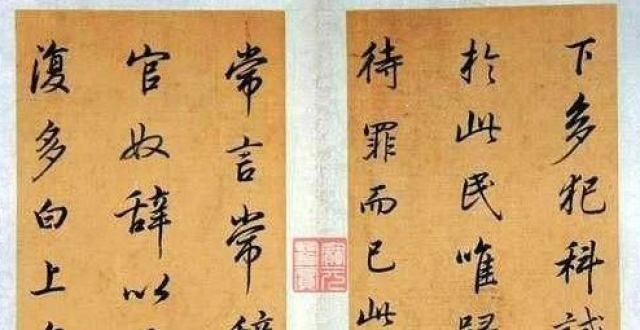 下多犯科誡
於此民唯歸
待罪而已此
常言常辭
官奴辭以
復多白上